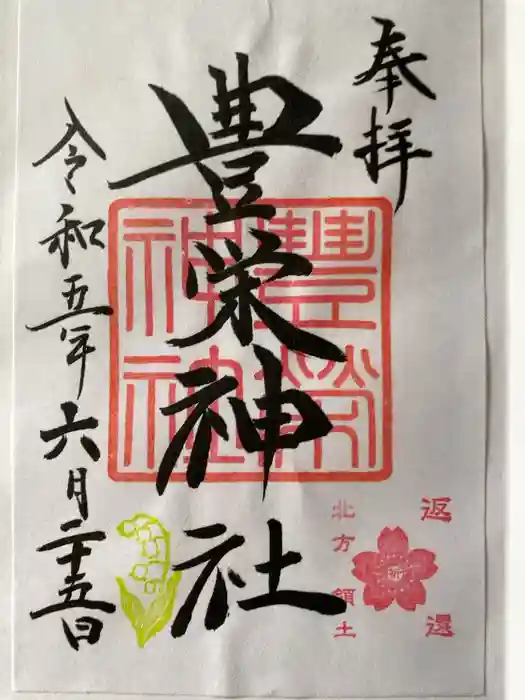 奉拝
豊栄神社
豊榮
神社
令和五年六月二十五日
北方領土
返還
祈